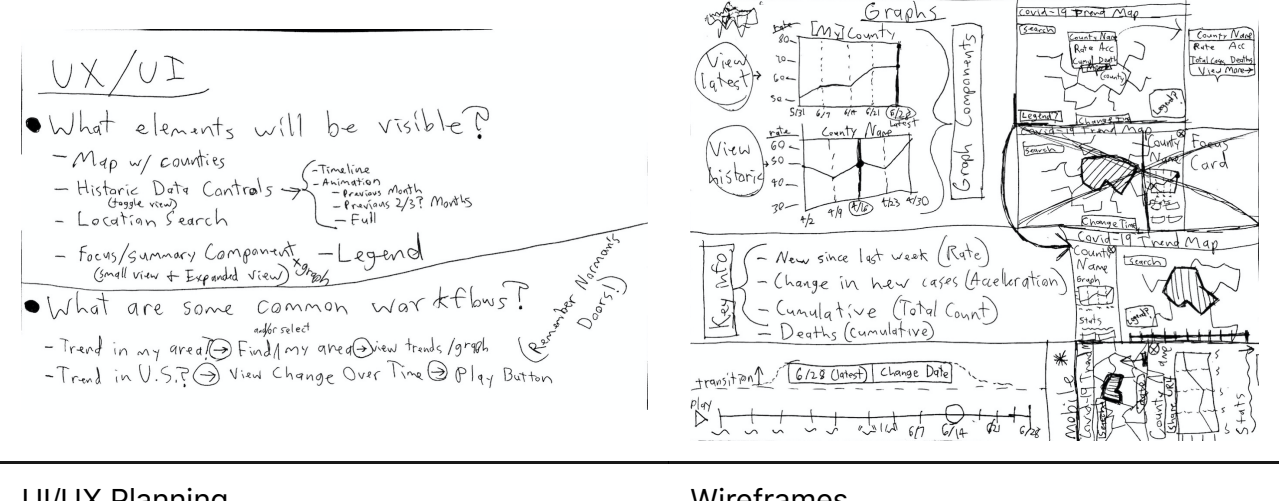 UX/UI
What elements will be visible?
- Map w/ counties
- Historic Data Controls → - Timeline
(toggle view)
- Animation
- Previous Month
- Previous 2/3? Months
- Full
- Location Search
- Focus/Summary Component - Legend
(small view + Expanded view) + graph
What are some common workflows?
(Remember Norman's Doors!)
and/or select
- Trend in my area? → Find/my area → View trends/graph
- Trend in U.S.? → View Change Over Time → Play Button
UI/UX Planning
Graphs
View latest →
rate [My] County
80
70
60
50
5/31 6/7 6/14 6/21 6/28
Latest
View historic →
rate County Name
60
50
40
30
4/2 4/9 4/16 4/23 4/30
Graph Components
Key Info
- New since last week (Rate)
- Change in new cases (Acceleration)
- Cumulative (Total Count)
- Deaths (cumulative)
transition ↑ 6/28 (latest) | Change Date
Play
6/7 6/14 6/21 6/28
Covid-19 Trend Map
Search
County Name
Rate Acc
Cumul Death
More
(county)
Legend?
Legend?
Change Time
County Name
Rate Acc
Total Cases Deaths
View More →
Covid-19 Trend Map
Search
County Name
Focus Card
Change Time
Covid-19 Trend Map
County Name
Graph
Stats
Search
Legend?
* Mobile
Covid-19 Trend M
Search
County Name
Share URL
Stats
Wireframes